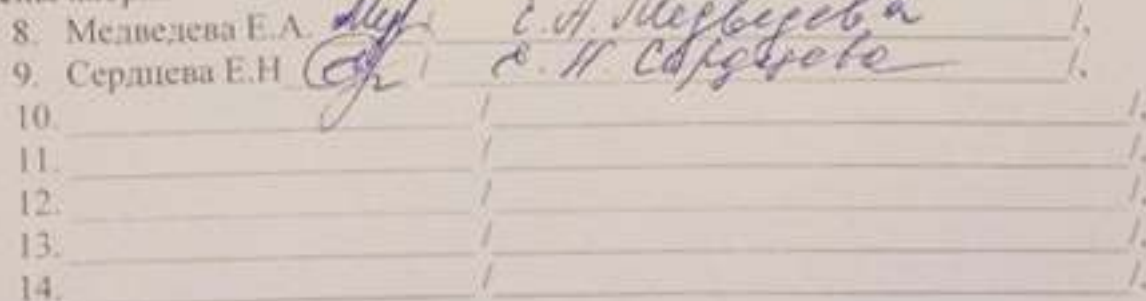 8. Медведева Е.А. / Е.А. Медведева /.
9. Сердцева Е.Н / Е.Н. Сердцева /.
10. / /.
11. / /.
12. / /.
13. / /.
14. / /.